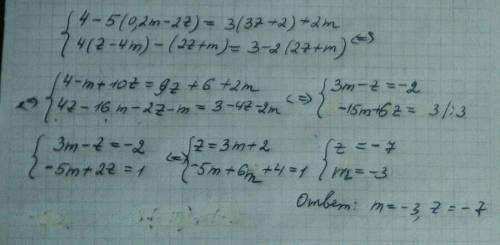 {4-5(0,2m-2z) = 3(3z+2)+2m
{4(z-4m)-(2z+m) = 3-2(2z+m) <=>
<=> {4-m+10z = 9z+6+2m <=> {3m-z = -2
{4z-16m-2z-m = 3-4z-2m {-15m+6z = 3/:3
{3m-z = -2 <=> {z = 3m+2 {z = -7
{-5m+2z = 1 {-5m+6m+4 = 1 {m = -3
Ответ: m = -3, z = -7